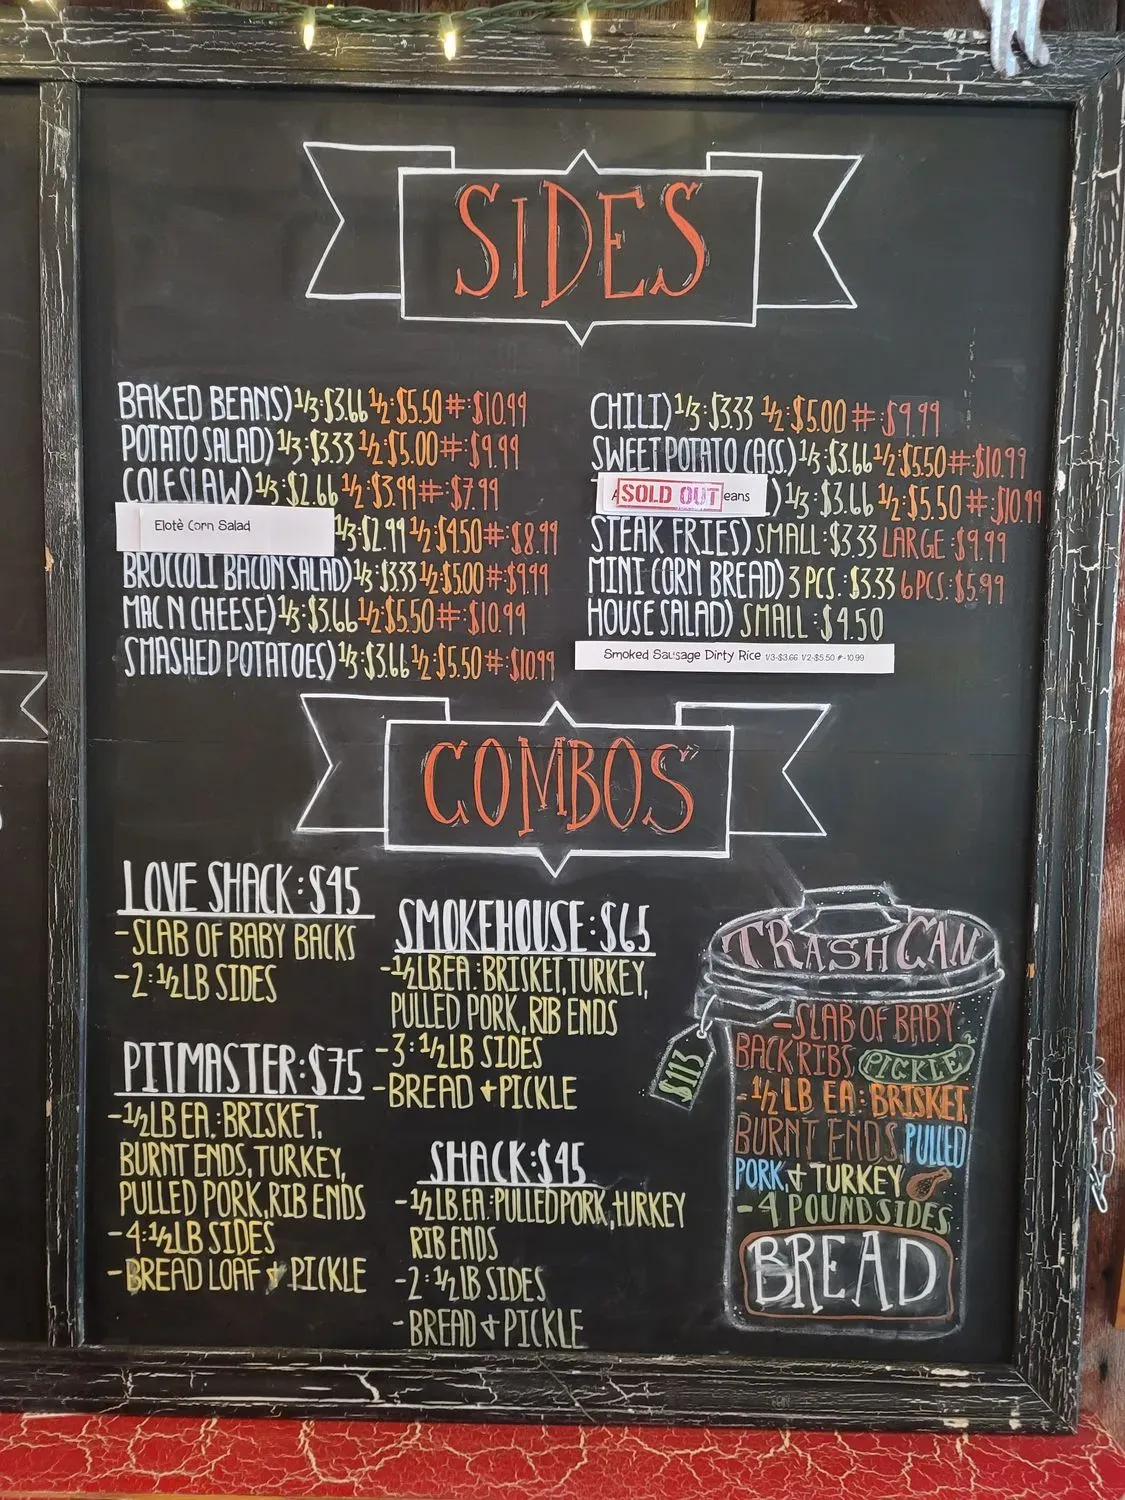 SIDES
BAKED BEANS) 1/3:$3.66 1/2:$5.50 #:$10.99
POTATO SALAD) 1/3:$3.33 1/2:$5.00 #:$9.99
COLESLAW) 1/3:$2.66 1/2:$3.99 #:$7.99
Elotè Corn Salad 1/3:$2.99 1/2:$4.50 #:$8.99
BROCCOLI BACON SALAD) 1/3:$3.33 1/2:$5.00 #:$9.99
MAC N CHEESE) 1/3:$3.66 1/2:$5.50 #:$10.99
SMASHED POTATOES) 1/3:$3.66 1/2:$5.50 #:$10.99
CHILI) 1/3:$3.33 1/2:$5.00 #:$9.99
SWEET POTATO CASS.) 1/3:$3.66 1/2:$5.50 #:$10.99
SOLD OUT eans ) 1/3:$3.66 1/2:$5.50 #:$10.99
STEAK FRIES) SMALL:$3.33 LARGE:$9.99
MINI CORN BREAD) 3 PCS.:$3.33 6 PCS.:$5.99
HOUSE SALAD) SMALL:$4.50
Smoked Sausage Dirty Rice 1/3-$3.66 1/2-$5.50 #-10.99
COMBOS
LOVE SHACK:$45
-SLAB OF BABY BACKS
-2:1/2LB SIDES
PITMASTER:$75
-1/2LB EA.:BRISKET,
BURNT ENDS, TURKEY,
PULLED PORK, RIB ENDS
-4:1/2LB SIDES
-BREAD LOAF + PICKLE
SMOKEHOUSE:$65
-1/2LB EA.:BRISKET, TURKEY,
PULLED PORK, RIB ENDS
-3:1/2LB SIDES
-BREAD + PICKLE
SHACK:$45
-1/2LB EA.:PULLED PORK, TURKEY
RIB ENDS
-2:1/2LB SIDES
-BREAD + PICKLE
TRASH CAN
$113
-SLAB OF BABY
BACK RIBS, PICKLE
-1/2 LB EA:BRISKET,
BURNT ENDS, PULLED
PORK, + TURKEY
-4 POUND SIDES
BREAD